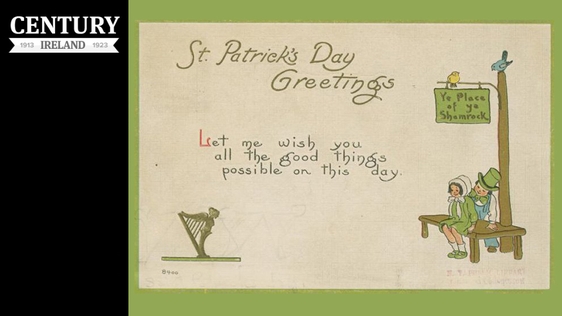 CENTURY
1913 IRELAND 1923
St. Patrick's Day
Greetings
Ye Place
of ye
Shamrock
Let me wish you
all the good things
possible on this day.